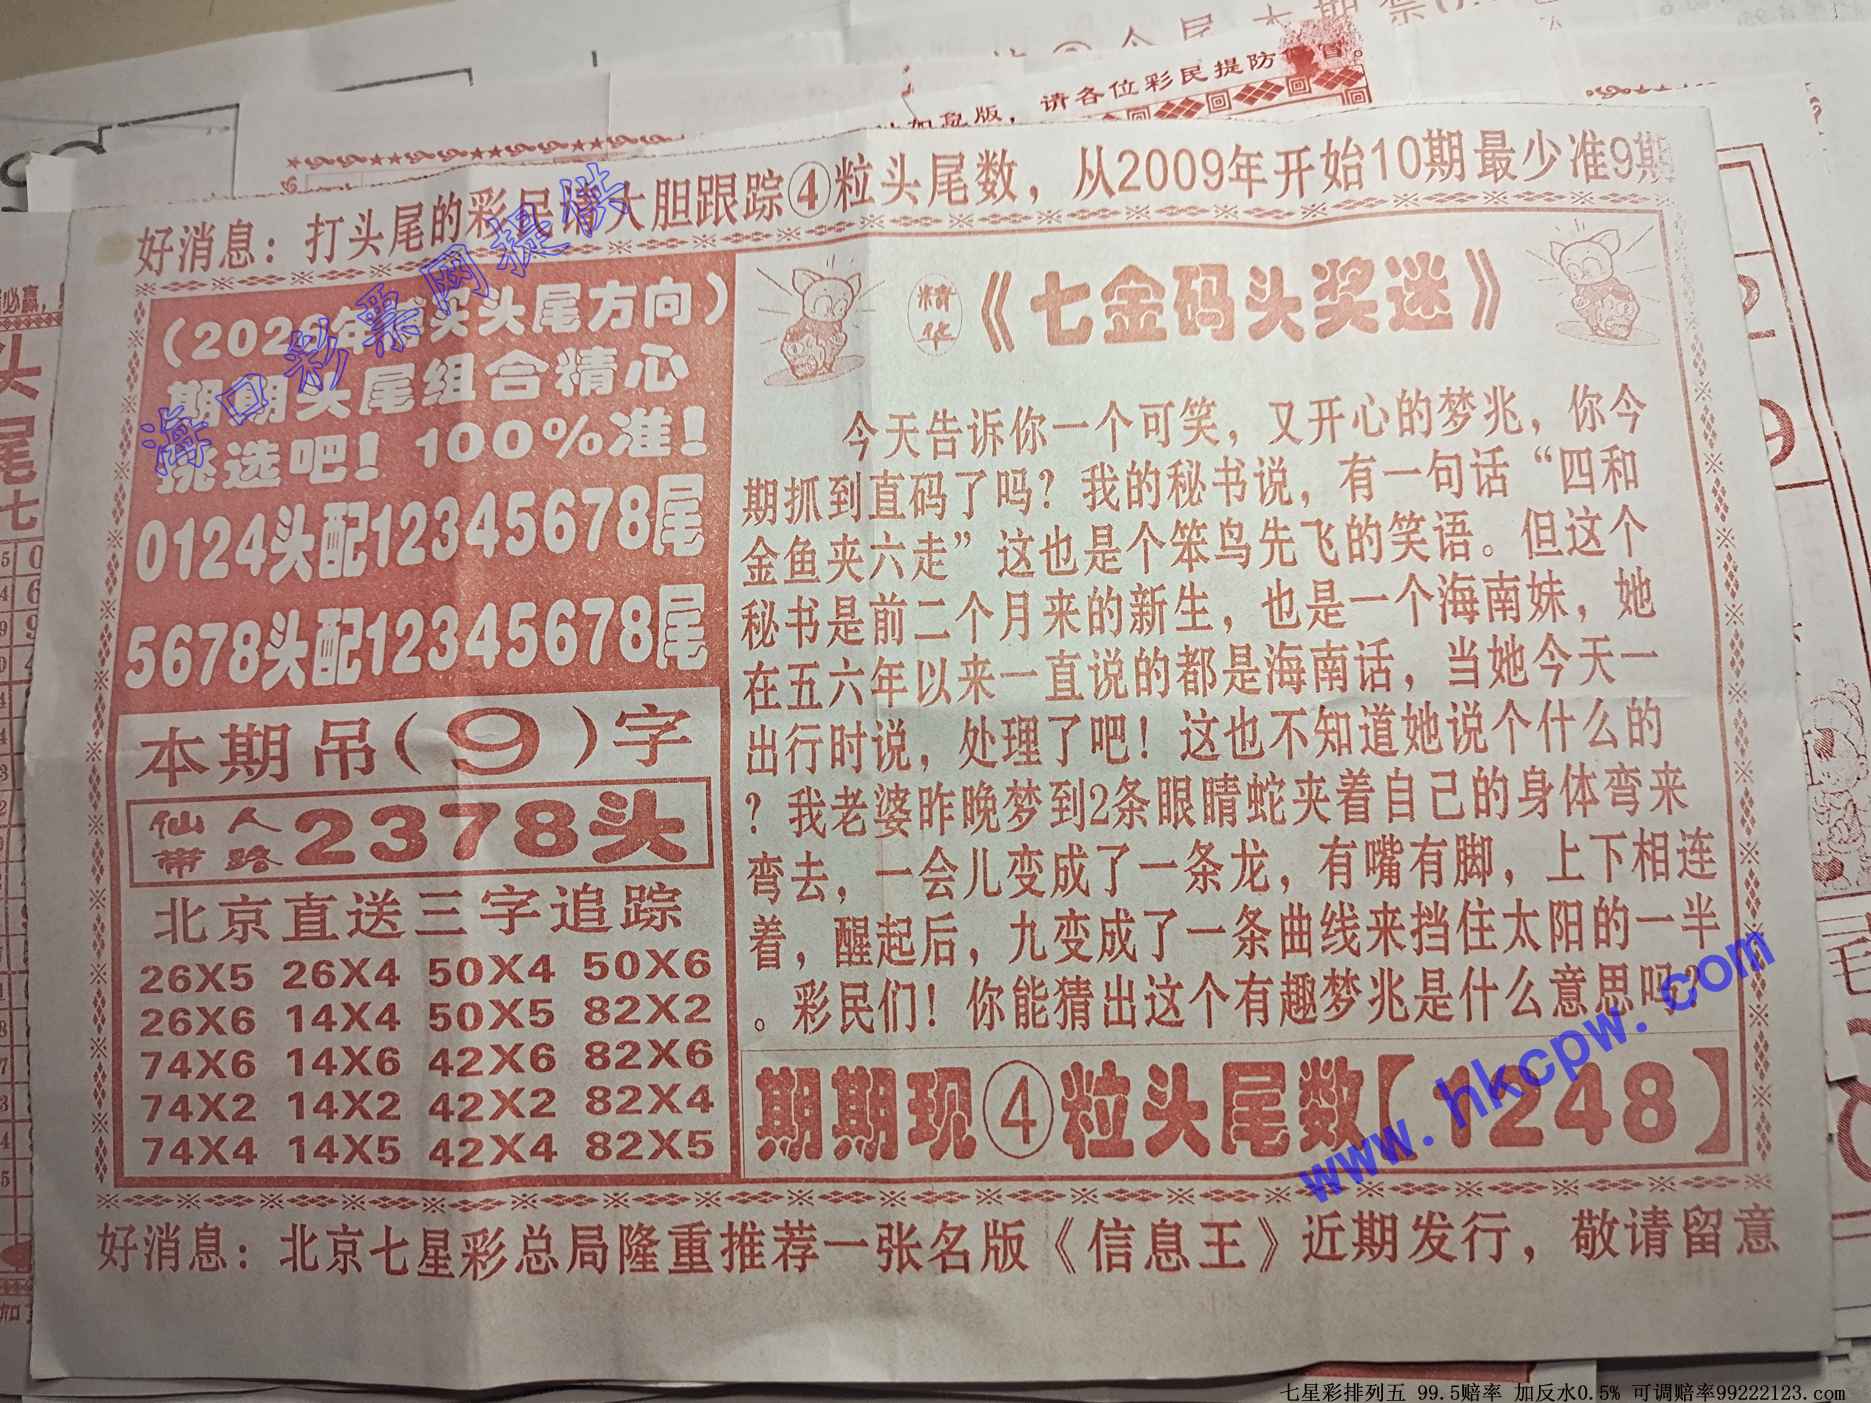 请各位彩民提防
好消息：打头尾的彩民请大胆跟踪④粒头尾数，从2009年开始10期最少准9期
海口彩票网提供
头尾方向）
期期头尾组合精心
挑选吧！100%准！
0124头配12345678尾
5678头配12345678尾
本期吊（9）字
仙人带路2378头
北京直送三字追踪
26X5 26X4 50X4 50X6
26X6 14X4 50X5 82X2
74X6 14X6 42X6 82X6
74X2 14X2 42X2 82X4
74X4 14X5 42X4 82X5
精华《七金码头奖迷》
今天告诉你一个可笑，又开心的梦兆，你今
期抓到直码了吗？我的秘书说，有一句话“四和
金鱼夹六走”这也是个笨鸟先飞的笑语。但这个
秘书是前二个月来的新生，也是一个海南妹，她
在五六年以来一直说的都是海南话，当她今天一
出行时说，处理了吧！这也不知道她说个什么的
？我老婆昨晚梦到2条眼睛蛇夹着自己的身体弯来
弯去，一会儿变成了一条龙，有嘴有脚，上下相连
着，醒起后，九变成了一条曲线来挡住太阳的一半
。彩民们！你能猜出这个有趣梦兆是什么意思吗？
期期现④粒头尾数【1248】
www.hkcpw.com
好消息：北京七星彩总局隆重推荐一张名版《信息王》近期发行，敬请留意
七星彩排列五 99.5赔率 加反水0.5% 可调赔率99222123.com